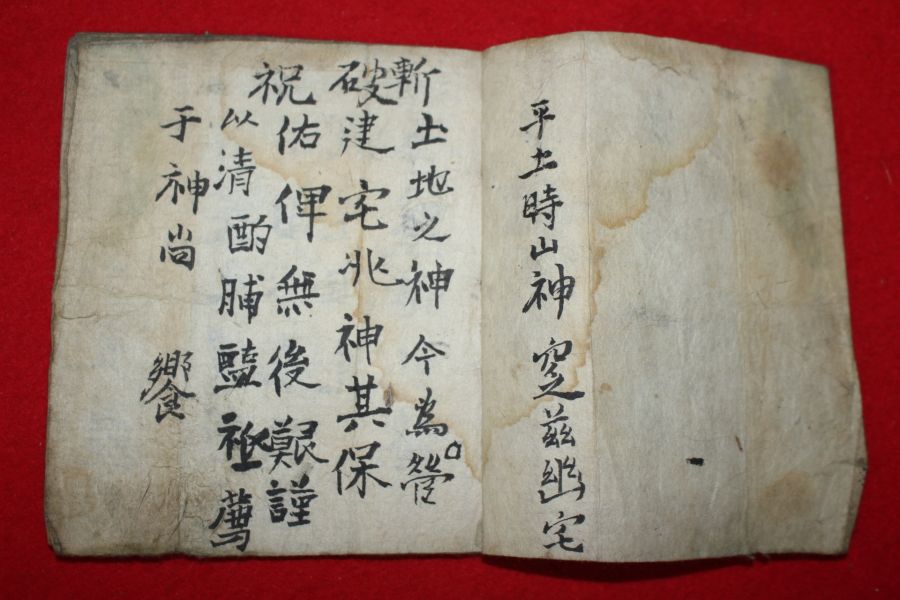 平土時山神 窆玆幽宅
斬破祝
土地之神今為營
建宅兆神其保
佑俾無後艱謹
以清酌脯醢祗薦
于神尙 饗